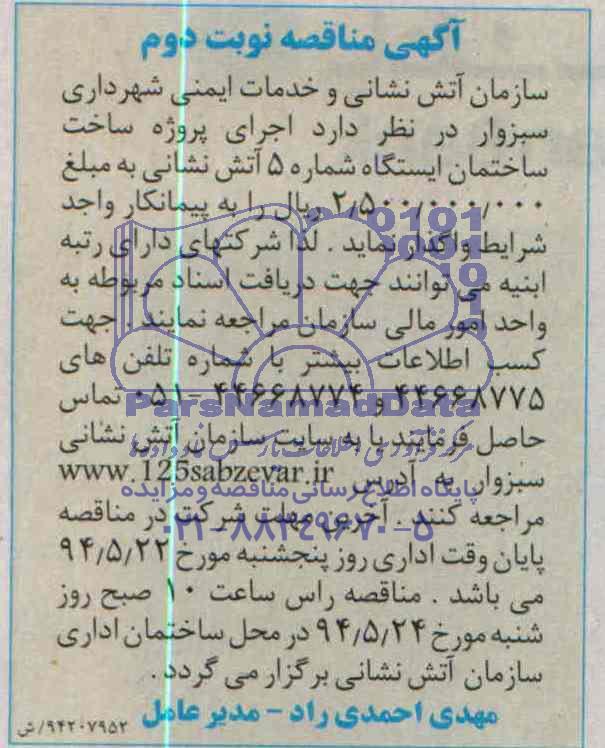 آگهی مناقصه نوبت دوم
سازمان آتش نشانی و خدمات ایمنی شهرداری
سبزوار در نظر دارد اجرای پروژه ساخت
ساختمان ایستگاه شماره ۵ آتش نشانی به مبلغ
۲٫۵۰۰٫۰۰۰٫۰۰۰ ریال را به پیمانکار واجد
شرایط واگذار نماید . لذا شرکتهای دارای رتبه
ابنیه می توانند جهت دریافت اسناد مربوطه به
واحد امور مالی سازمان مراجعه نمایند . جهت
کسب اطلاعات بیشتر با شماره تلفن های
۴۴۶۶۸۷۷۵ و ۴۴۶۶۸۷۷۴ - ۰۵۱ تماس
ParsNamadData
حاصل فرمایید یا به سایت سازمان آتش نشانی
سبزوار به آدرس www.125sabzevar.ir
پایگاه اطلاع رسانی مناقصه و مزایده
مراجعه کنند . آخرین مهلت شرکت در مناقصه
۰۲۱-۸۸۳۴۹۶۷۰-۵
پایان وقت اداری روز پنجشنبه مورخ ۹۴٫۵٫۲۲
می باشد . مناقصه راس ساعت ۱۰ صبح روز
شنبه مورخ ۹۴٫۵٫۲۴ در محل ساختمان اداری
سازمان آتش نشانی برگزار می گردد .
مهدی احمدی راد - مدیر عامل
۹۴۲۰۷۹۵۲/ش